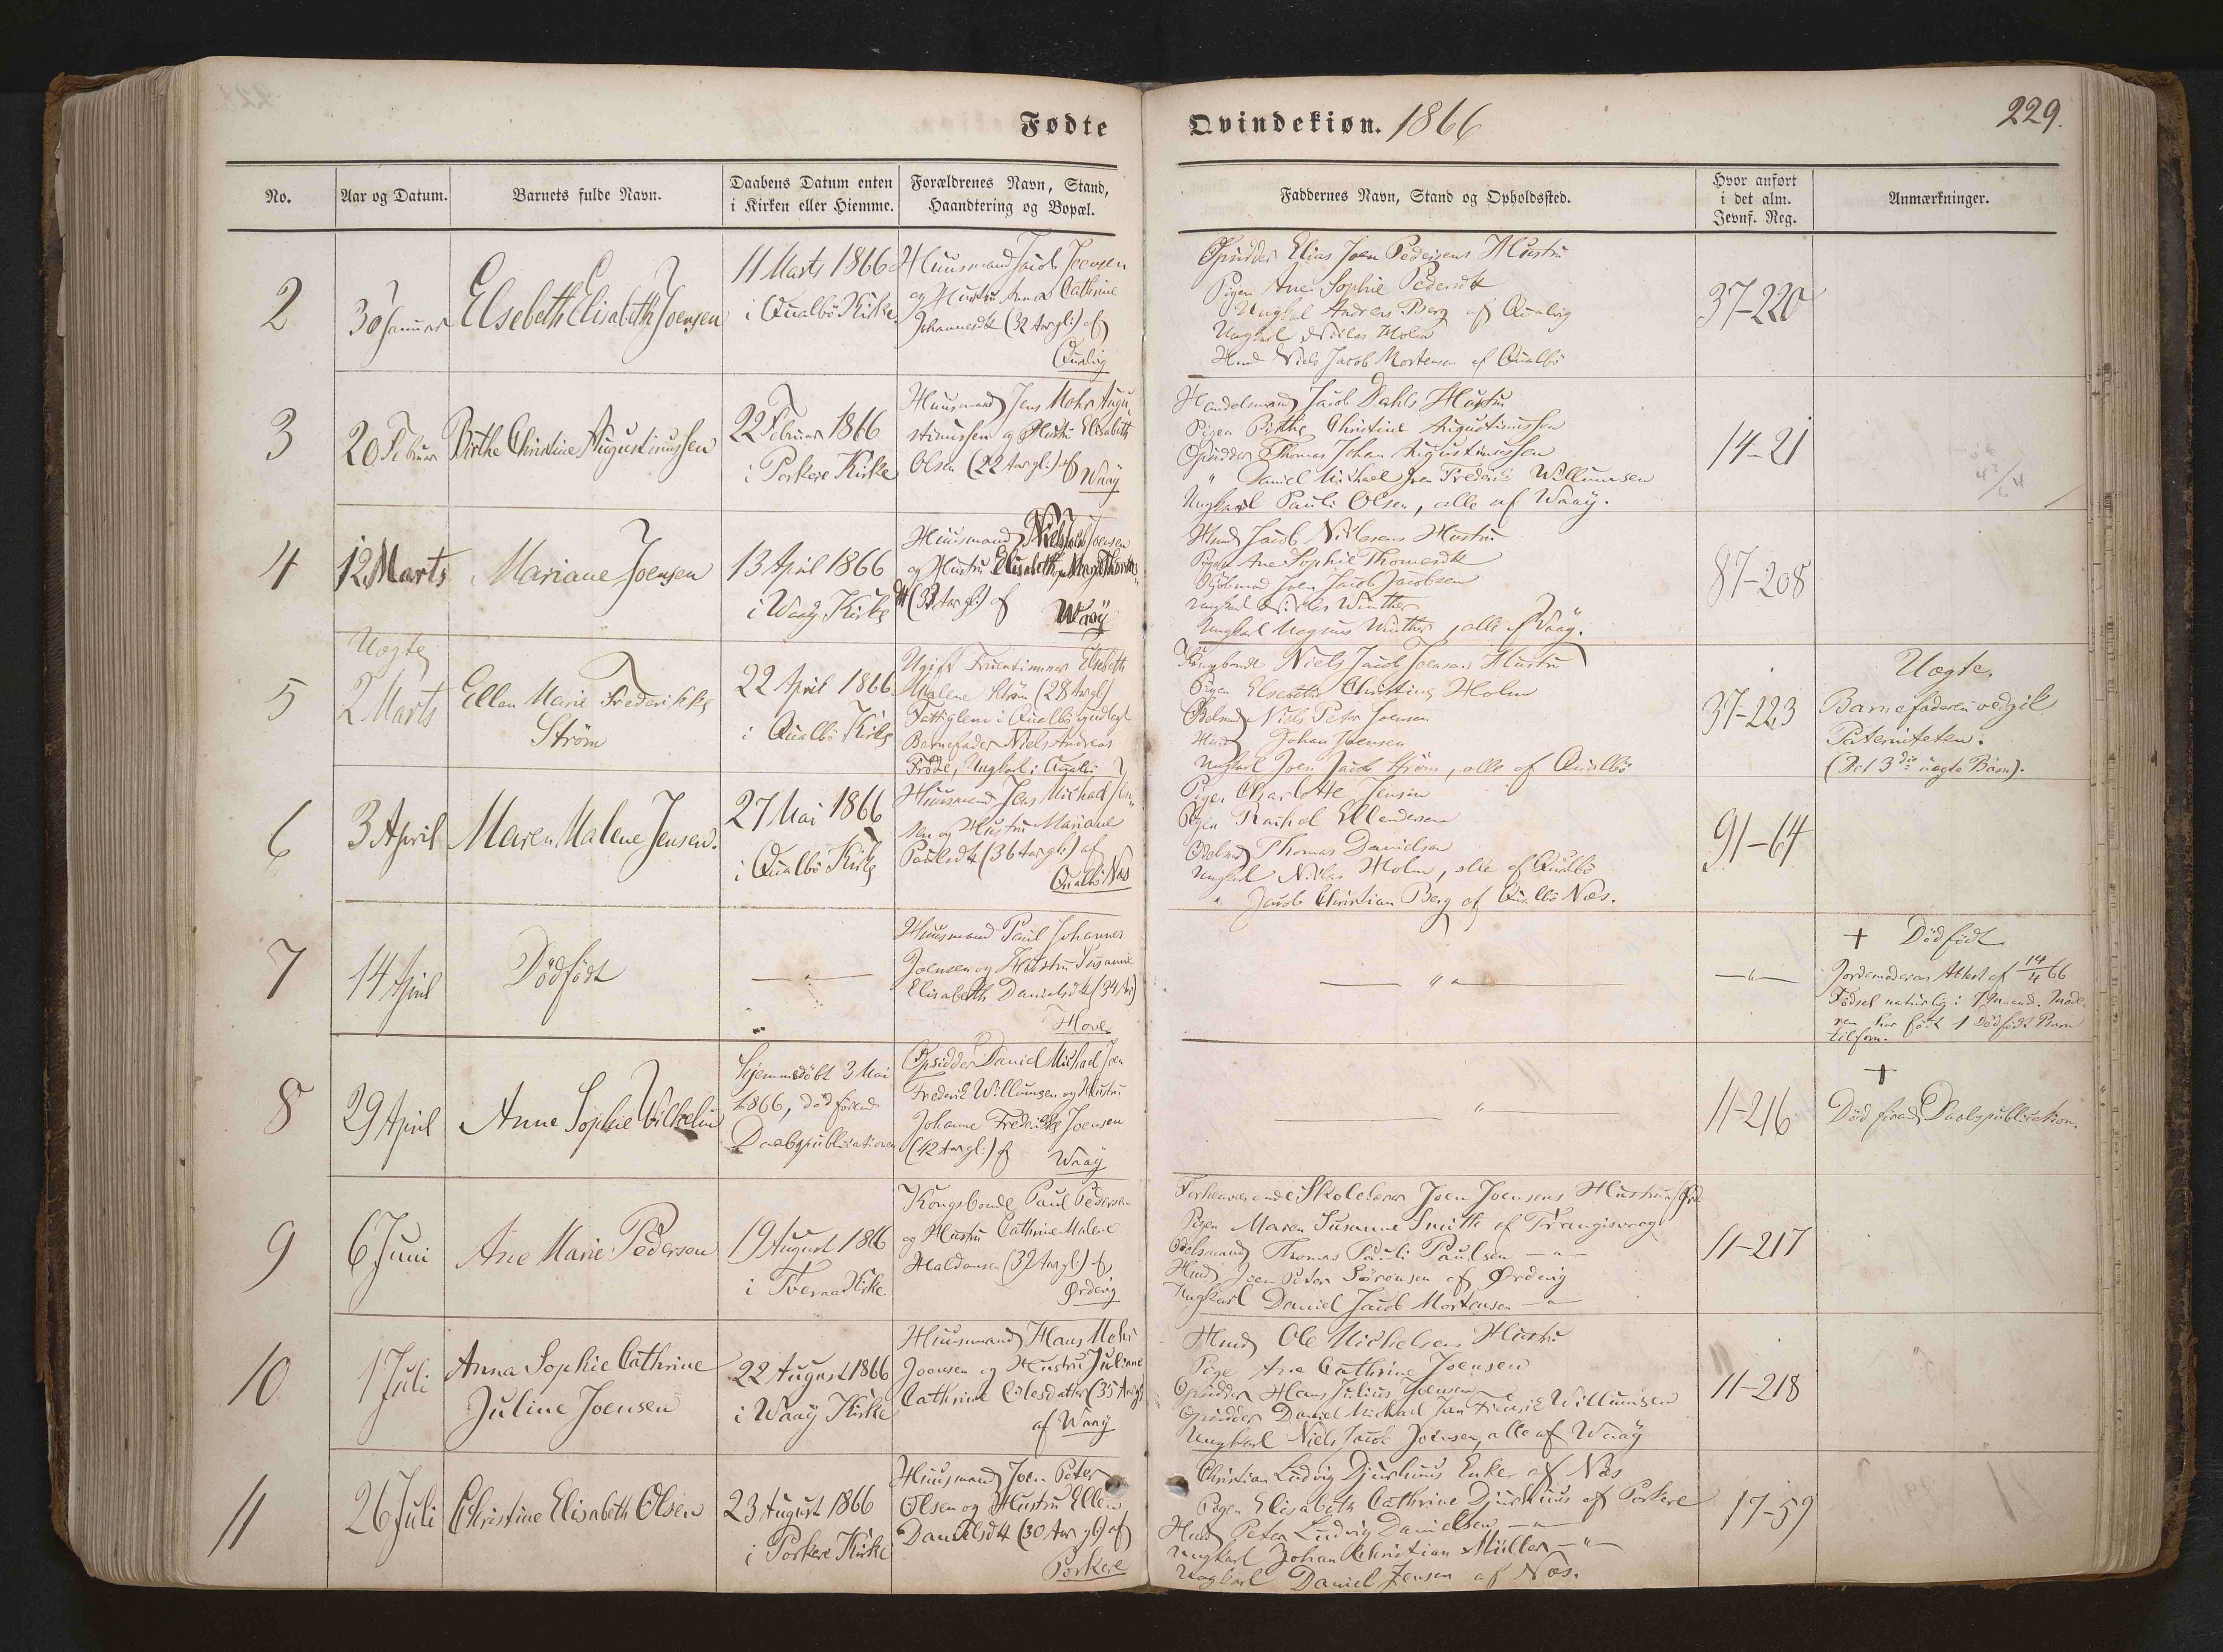 Fødte
Qvindekiøn. 1866
229.
No.
Aar og Datum.
Barnets fulde Navn.
Daabens Datum enten
i Kirken eller Hiemme.
Forældrenes Navn, Stand,
Haandtering og Bopæl.
Faddernes Navn, Stand og Opholdssted.
Hvor anført
i det alm.
Jevnf. Reg.
Anmærkninger.
2
30 Januar
Elsebeth Elisabeth Joensen
11 Marts 1866
i Qualbö Kirke.
Huusmand Jacob Joensen
og Hustru Anna Cathrine
Johannesdtr (32 Aar gl:) af
Qualvig
Opsidder Elias Joen Pedersens Hustru
Pigen Ane Sophie Pedersdtr
Ungkarl Andreas Berg af Qualvig
Ungkarl Niclas Holm
Hmd Niels Jacob Mortensen af Qualbö
37-220
3
20 Februar
Birthe Christine Augustinussen
22 Februar 1866
i Porkere Kirke
Huusmand Jens Mohr Augu-
stinussen og Hustru Elisabeth
Olsen (22 Aar gl:) af Waaÿ
Handelsmand Jacob Dahls Hustru
Pigen Birthe Christine Augustinussen
Opsidder Thomas Johan Augustinussen
" Daniel Michael Joen Frederik Willumsen
Ungkarl Pauli Olsen, alle af Waaÿ.
14-21
4
12 Marts
Mariane Joensen
13 April 1866
i Waaÿ Kirke
Huusmand Niels Jacob Joensen
og Hustru Elisabeth
af
Waaÿ
Hmd Jacob Niclasens Hustru
Pigen Ane Sophie Thomasdtr
Joen Jacob Jacobsen
Ungkarl Niclas Winther
Ungkarl Magnus Winther, alle af Waaÿ.
87-208
Uægte
5
2 Marts
Ellen Marie Frederikke
Ström
22 April 1866
i Qualbö Kirke
Ugift Fruentimmer Elsebeth
Malene Ström (28 Aar gl)
Fattiglem i Qualbö
Barnefader Niels Andreas
Ungkarl i Qualbö
Kongsbonde Niels Jacob Joensens Hustru
Pigen Elsebeth Christine Holm
Odelsmd Niels Peter Joensen
Hmd Johan Joensen
Ungkarl Joen Jacob Ström, alle af Qualbö
37-223
Uægte.
Barnefaderen vedgik
Paterniteten.
(Det 3die uægte Barn).
6
3 April
Maren Malene Jensen.
27 Mai 1866
i Qualbö Kirke
Huusmand Jens Michael Jen-
sen og Hustru Mariane
Poulsdtr (36 Aar gl:) af
Qualbö Næs
Pigen Charlotte Jensen
Pigen Rachel Ellendersen
Odelsmd Thomas Davidsen
Ungkarl Niclas Holm, alle af Qualbö
" Jacob Christian Berg af Qualbö Næs.
91-64
7
14 April
Dödfödt
— " —
Huusmand Paul Johannes
Joensen og Hustru Susanne
Elisabeth Danielsdtr (34 Ar)
Hove
— " —
— " —
+ Dödfödt
Jordemoderens Attest af 14/4 66
Födsel naturlig i 7 Maaned. Mode-
ren har födt 1 Dödfödt Barn
tilforn.
8
29 April
Anne Sophie Wilhelm
Hjemmedöbt 3 Mai
1866, död förend
Daabspublicationen
Opsidder Daniel Michael Joen
Frederik Willumsen og Hustru
Johanne Frederikke Joensen
(42 Aar gl:) af Waaÿ
— " —
11-216
+
Död förend Daabspublication.
9
6 Juni
Ane Marie Pedersen
19 August 1866
i Tveraa Kirke
Kongsbonde Paul Pedersen
og Hustru Cathrine Malene
Haldansen (32 Aar gl:) af
Ørdevig
Forhenværende Skolelærer Joen Joensens Hustru
Pigen Maren Susanne Smith af Trangisvaag
Odelsmand Thomas Pauli Paulsen — " —
Hmd Joen Peter Sörensen af Ørdevig
Ungkarl Daniel Jacob Mortensen — " —
11-217
10
1 Juli
Anna Sophie Cathrine
Juline Joensen
22 August 1866
i Waaÿ Kirke
Huusmand Hans Mohr
Joensen og Hustru Julianne
Cathrine Olesdatter (35 Aar gl)
af Waaÿ
Hmd Ole Michelsens Hustru
Pige Ane Cathrine Joensen
Opsidder Hans Julius Joensen
Opsidder Daniel Michael Joen Frederik Willumsen
Ungkarl Niels Jacob Joensen, alle af Waaÿ
11-218
11
26 Juli
Christine Elisabeth Olsen
23 August 1866
i Porkere Kirke
Huusmand Joen Peter
Olsen og Hustru Ellen
Danielsdtr (30 Aar gl:) af
Porkere
Christian Ludvig Djurhuus Enke af Næs
Pigen Elisabeth Cathrine Djurhuus af Porkere
Hmd Peter Ludvig Danielsen — " —
Ungkarl Johan Christian Müller — " —
Ungkarl Daniel Jensen af Næs.
17-59